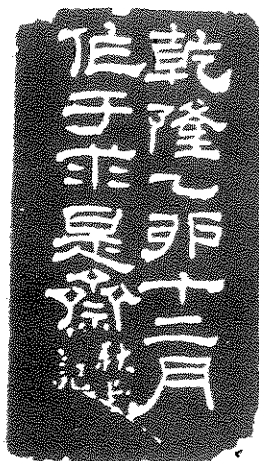 乾隆乙卯十二月
作于求是齋秋堂
記